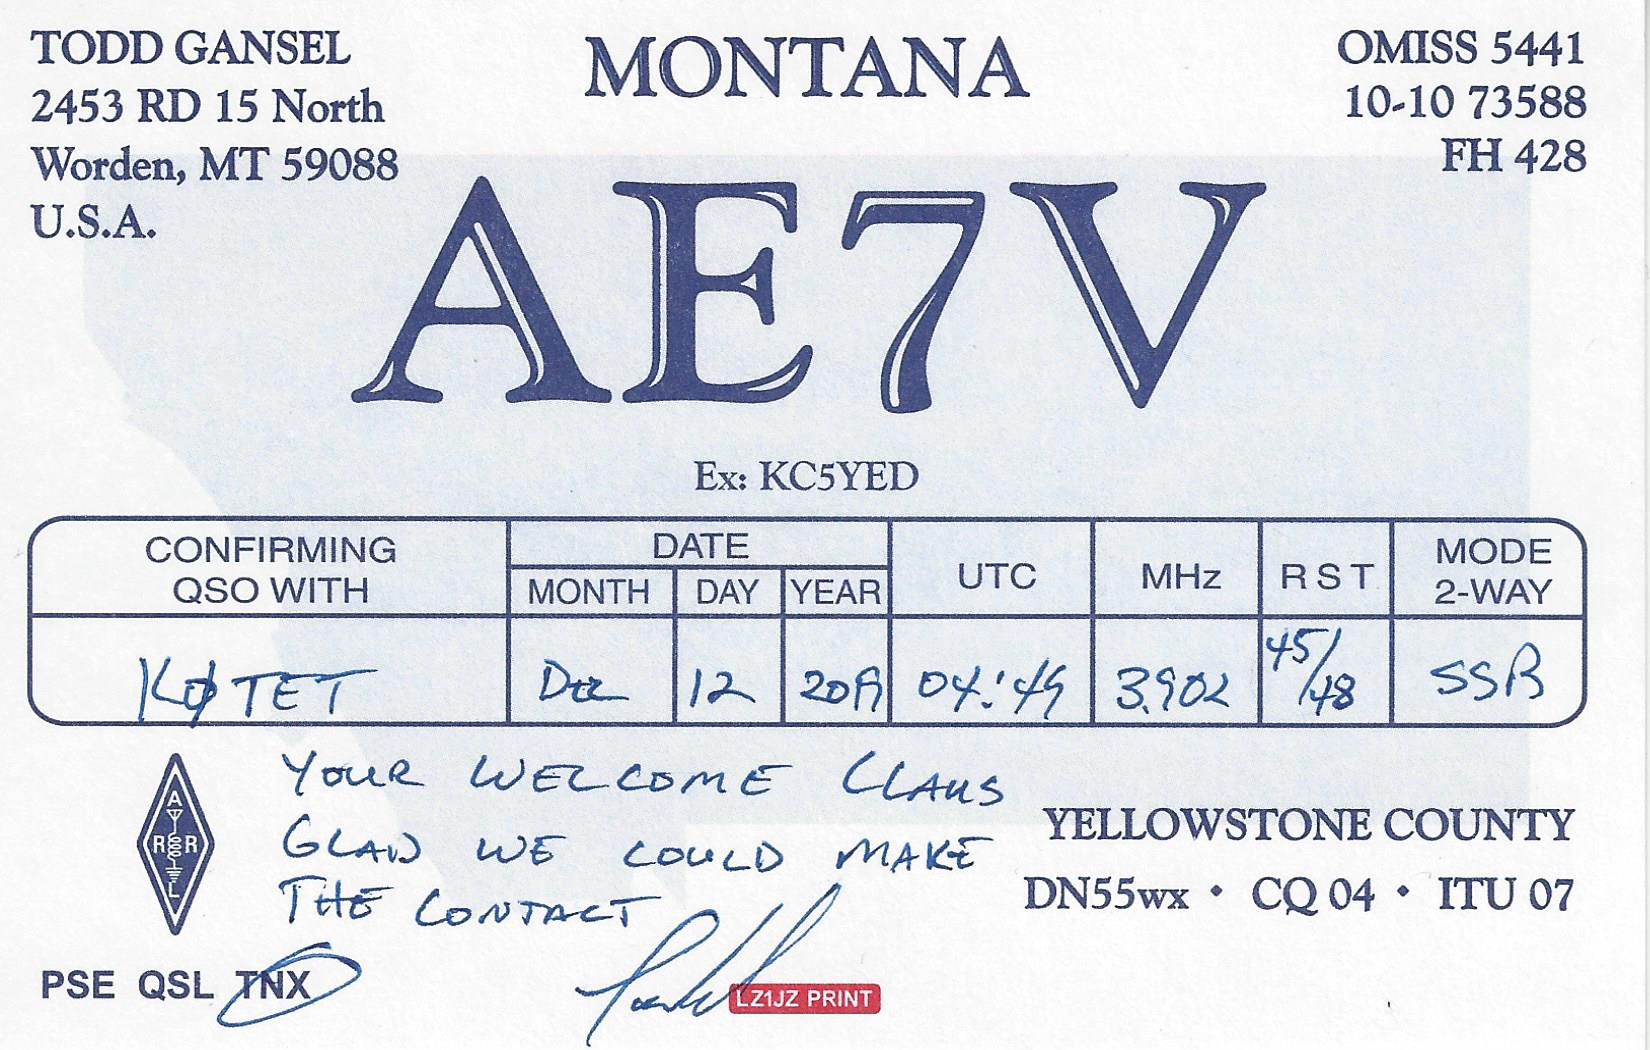 TODD GANSEL
2453 RD 15 North
Worden, MT 59088
U.S.A.
MONTANA
OMISS 5441
10-10 73588
FH 428
AE7V
Ex: KC5YED
CONFIRMING QSO WITH
DATE
MONTH DAY YEAR
UTC
MHz
RST
MODE 2-WAY
KØTET Dec 12 2019 04:49 3.902 45/48 SSB
YOUR WELCOME CLAUS
GLAD WE COULD MAKE
THE CONTACT
Todd
ARRL
YELLOWSTONE COUNTY
DN55wx • CQ 04 • ITU 07
PSE QSL TNX
LZ1JZ PRINT